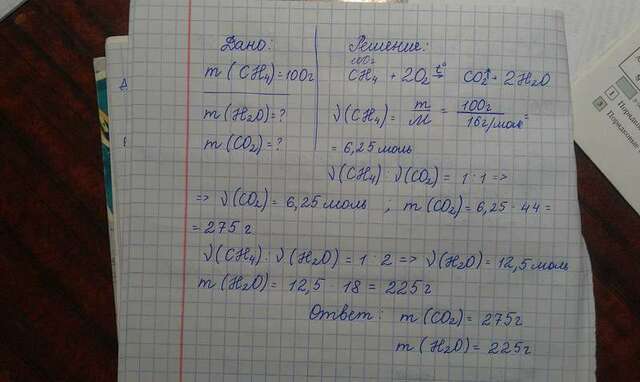 Дано:
m(CH₄)=100г
m(H₂O)=?
m(CO₂)=?
Решение:
100г
CH₄ + 2O₂ t°→ CO₂↑ + 2H₂O
ν(CH₄) = m/M = 100г/16г/моль =
= 6,25 моль
ν(CH₄) : ν(CO₂) = 1 : 1 =>
=> ν(CO₂) = 6,25 моль ; m(CO₂) = 6,25 · 44 =
= 275 г
ν(CH₄) : ν(H₂O) = 1 : 2 => ν(H₂O) = 12,5 моль
m(H₂O) = 12,5 · 18 = 225 г
Ответ: m(CO₂) = 275г
m(H₂O) = 225г